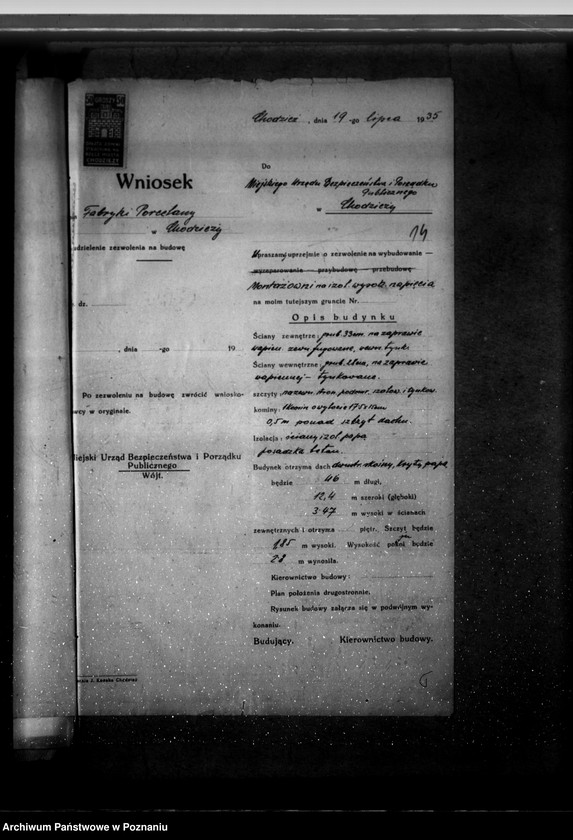 Wniosek
Fabryki Porcelany
w Chodzieży
udzielenie zezwolenia na budowę
dz.
, dnia -go 19
Po zezwoleniu na budowę zwrócić wniosko-
wcy w oryginale.
Miejski Urząd Bezpieczeństwa i Porządku
Publicznego
Wójt.
Chodzież, dnia 19-go lipca 1935
Do
Miejskiego Urzędu Bezpieczeństwa i Porządku
Publicznego
w Chodzieży
14
Upraszam uprzejmie o zezwolenie na wybudowanie —
wyreparowanie — przybudowę — przebudowę
Montażowni na izol. wysok. napięcia
na moim tutejszym gruncie Nr.
Opis budynku
Ściany zewnętrzne: grub. 33 cm. na zaprawie
wapien. zewn. fugowane, wewn. tynk.
Ściany wewnętrzne: grub. na zaprawie
wapiennej — tynkowane.
szczyty:
kominy:
0,5 m ponad szczyt dachu.
Izolacja: ściany izol papą
posadzka beton.
Budynek otrzyma dach kryty papą
będzie 46 m długi,
12,4 m szeroki (głęboki)
3.47 m wysoki w ścianach
zewnętrznych i otrzyma piętr. Szczyt będzie
m wysoki. Wysokość będzie
28 m wynosiła.
Kierownictwo budowy:
Plan położenia drugostronnie.
Rysunek budowy załącza się w podwójnym wy-
konaniu.
Budujący. Kierownictwo budowy.
Archiwum Państwowe w Poznaniu